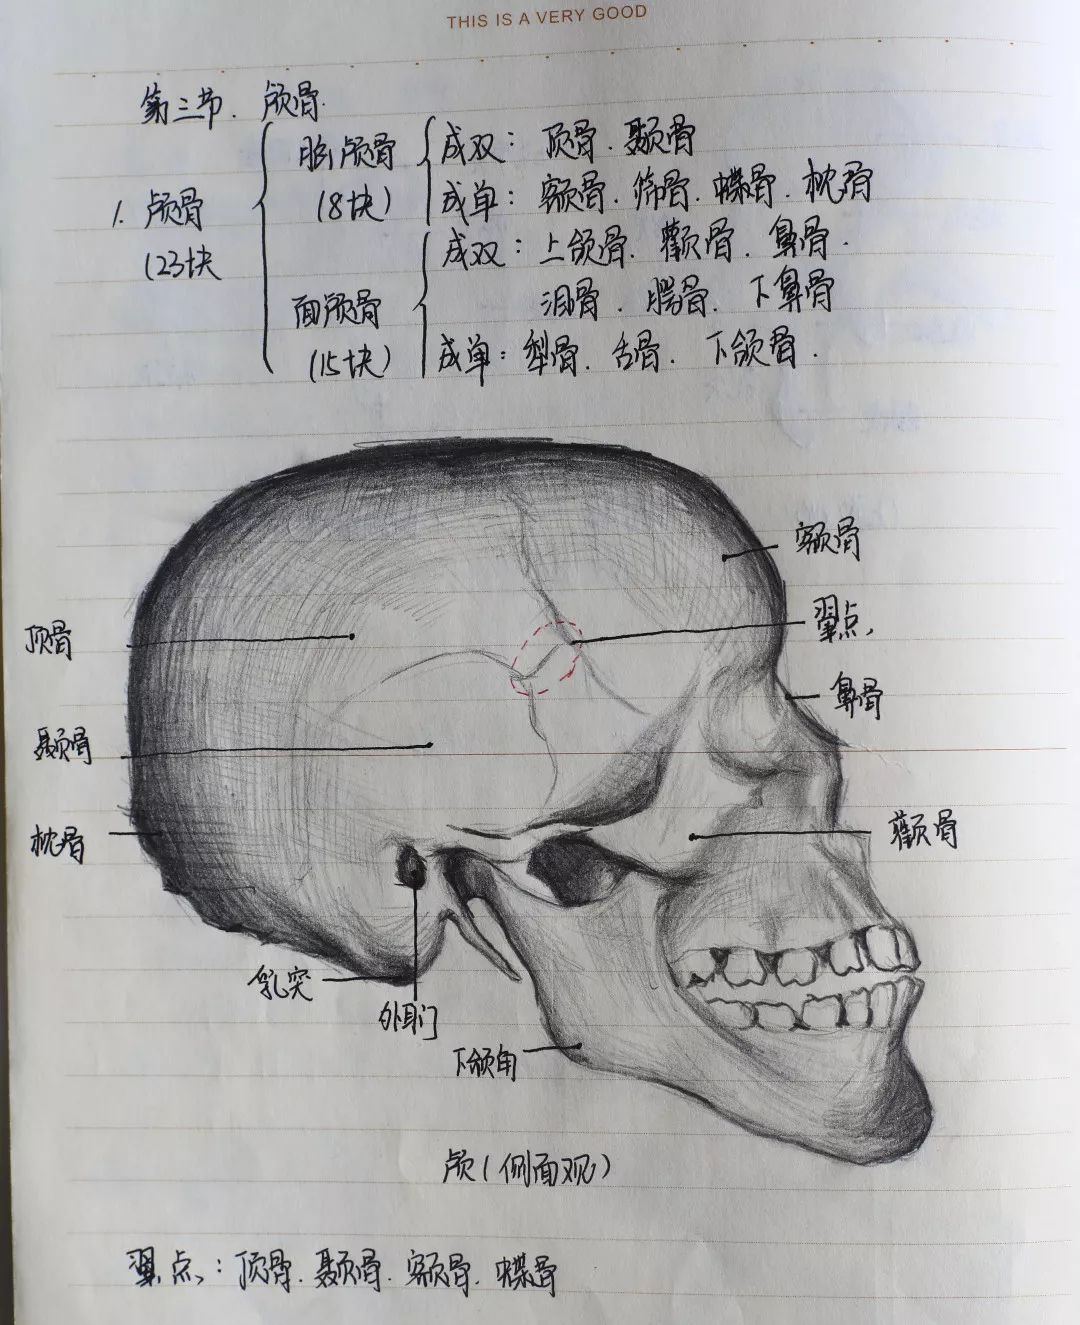 THIS IS A VERY GOOD
第三节. 颅骨.
1. 颅骨
(23块
脑颅骨
(8块)
成双: 顶骨. 颞骨
成单: 额骨. 筛骨. 蝶骨. 枕骨
面颅骨
(15块)
成双: 上颌骨. 颧骨. 鼻骨.
泪骨. 腭骨. 下鼻骨
成单: 犁骨. 舌骨. 下颌骨.
额骨
翼点
顶骨
鼻骨
颞骨
颧骨
枕骨
乳突
外耳门
下颌角
颅(侧面观)
翼点: 顶骨. 颞骨. 额骨. 蝶骨